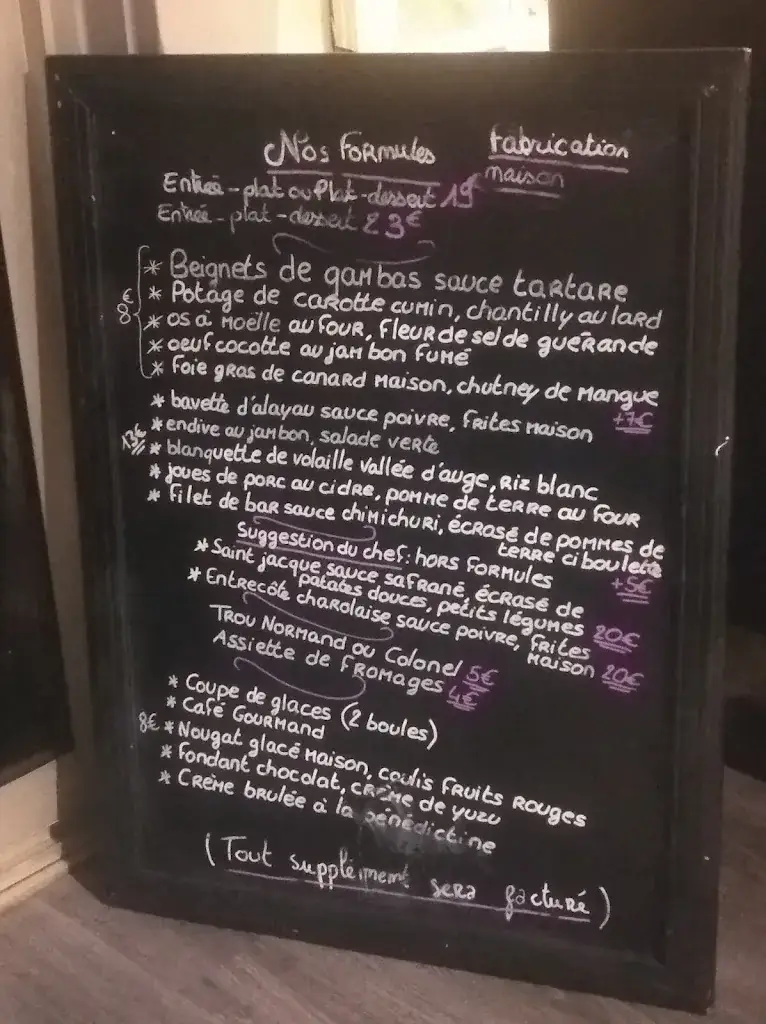 Nos Formules
Fabrication
maison
Entrée-plat ou Plat-dessert 19€
Entrée-plat-dessert 23€
8€
* Beignets de gambas sauce tartare
* Potage de carotte cumin, chantilly au lard
* os à moëlle au four, fleur de sel de guérande
* oeuf cocotte au jambon fumé
* Foie gras de canard maison, chutney de mangue
+7€
* bavette d'alayau sauce poivre, frites maison
13€
* endive au jambon, salade verte
* blanquette de volaille vallée d'auge, riz blanc
* joues de porc au cidre, pomme de terre au four
* Filet de bar sauce chimichuri, écrasé de pommes de
terre ciboulette
+5€
Suggestion du chef: hors formules
* Saint jacque sauce safrané, écrasé de
patates douces, petits légumes 20€
* Entrecôte charolaise sauce poivre, frites
maison 20€
Trou Normand ou Colonel 5€
Assiette de fromages 4€
* Coupe de glaces (2 boules)
* Café Gourmand
8€ * Nougat glacé maison, coulis fruits rouges
* Fondant chocolat, crème de yuzu
* Crème brulée à la bénédictine
(Tout supplément sera facturé)